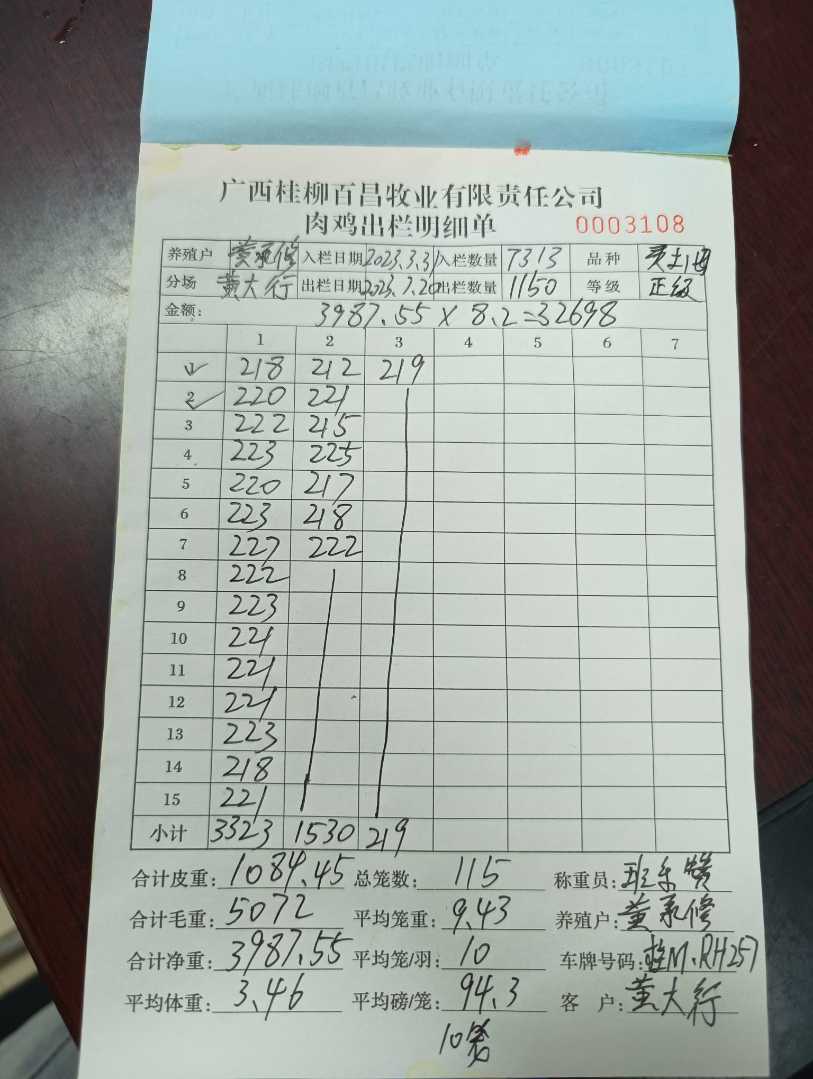 广西桂柳百昌牧业有限责任公司
肉鸡出栏明细单 0003108
养殖户 黄承修 入栏日期 2023.3.31 入栏数量 7313 品种
分场 黄大行 出栏日期 2023.7.20 出栏数量 1150 等级 正级
金额: 3987.55 × 8.2=32698
1 2 3 4 5 6 7
1 218 212 219
2 220 221
3 222 215
4 223 225
5 220 217
6 223 218
7 227 222
8 222
9 223
10 221
11 221
12 221
13 223
14 218
15 221
小计 3323 1530 219
合计皮重: 1084.45 总笼数: 115 称重员:
合计毛重: 5072 平均笼重: 9.43 养殖户: 黄承修
合计净重: 3987.55 平均笼/羽: 10 车牌号码: 桂M.RH257
平均体重: 3.46 平均磅/笼: 94.3 客 户: 黄大行
10笼